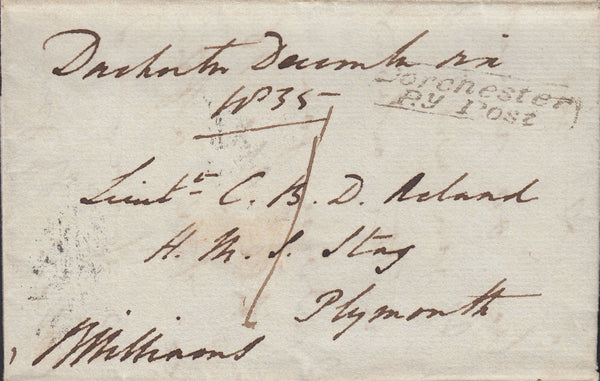 Dorchester December six
1835
Dorchester
Py Post
Lieut C. B. D. Acland
H. M. S. Stag
Plymouth
Williams